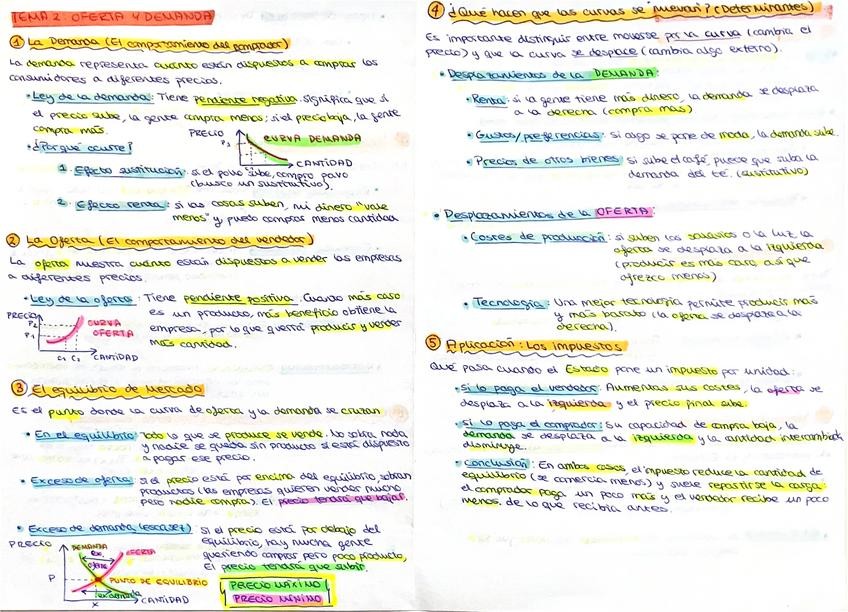 TEMA 2: OFERTA Y DEMANDA
① La Demanda (El comportamiento del comprador)
La demanda representa cuánto están dispuestos a comprar los
consumidores a diferentes precios.
• Ley de la demanda: Tiene pendiente negativa. Significa que si
el precio sube, la gente compra menos; si el precio baja, la gente
compra más.
• ¿Por qué ocurre?
PRECIO
CURVA DEMANDA
CANTIDAD
1. Efecto sustitución: si el pollo sube, compro pavo
(busco un sustitutivo).
2. Efecto renta: si las cosas suben, mi dinero "vale
menos" y puedo comprar menos cantidad
② La Oferta (El comportamiento del vendedor)
La oferta muestra cuánto están dispuestos a vender las empresas
a diferentes precios.
• Ley de la oferta: Tiene pendiente positiva. Cuando más caro
es un producto, más beneficio obtiene la
empresa, por lo que querrá producir y vender
más cantidad.
PRECIO
P2
P1
CURVA
OFERTA
C1 C2 CANTIDAD
③ El equilibrio de Mercado
Es el punto donde la curva de oferta y la demanda se cruzan
• En el equilibrio: Todo lo que se produce se vende. No sobra nada
y nadie se queda sin producto si está dispuesto
a pagar ese precio.
• Exceso de oferta: si el precio está por encima del equilibrio, sobran
productos (las empresas quieren vender mucho
pero nadie compra). El precio tendrá que bajar.
• Exceso de demanda (escasez) Si el precio está por debajo del
equilibrio, hay mucha gente
queriendo comprar pero poco producto,
El precio tendrá que subir.
PRECIO
DEMANDA
OFERTA
ex.
oferta
P
PUNTO DE EQUILIBRIO
ex demanda
X
CANTIDAD
PRECIO MÁXIMO
PRECIO MÍNIMO
④ ¿Qué hacen que las curvas se "muevan"? (Determinantes)
Es importante distinguir entre moverse por la curva (cambia el
precio) y que la curva se desplace (cambia algo externo).
• Desplazamientos de la DEMANDA:
• Renta: si la gente tiene más dinero, la demanda se desplaza
a la derecha (compra más)
• Gustos/preferencias: si algo se pone de moda, la demanda sube.
• Precios de otros bienes: si sube el café, puede que suba la
demanda del té. (sustitutivo)
• Desplazamientos de la OFERTA:
• Costes de producción: si suben los salarios o la luz la
oferta se desplaza a la izquierda
(producir es más caro, así que
ofrezco menos)
• Tecnología: Una mejor tecnología permite producir más
y más barato (la oferta se desplaza a la
derecha).
⑤ Aplicación: Los impuestos
Qué pasa cuando el Estado pone un impuesto por unidad:
• si lo paga el vendedor: Aumentan sus costes, la oferta se
desplaza a la izquierda y el precio final sube.
• Si lo paga el comprador: Su capacidad de compra baja, la
demanda se desplaza a la izquierda y la cantidad intercambiada
disminuye.
• Conclusión: En ambos casos, el impuesto reduce la cantidad de
equilibrio (se comercia menos) y suele repartirse la carga:
el comprador paga un poco más y el vendedor recibe un poco
menos. de lo que recibía antes.